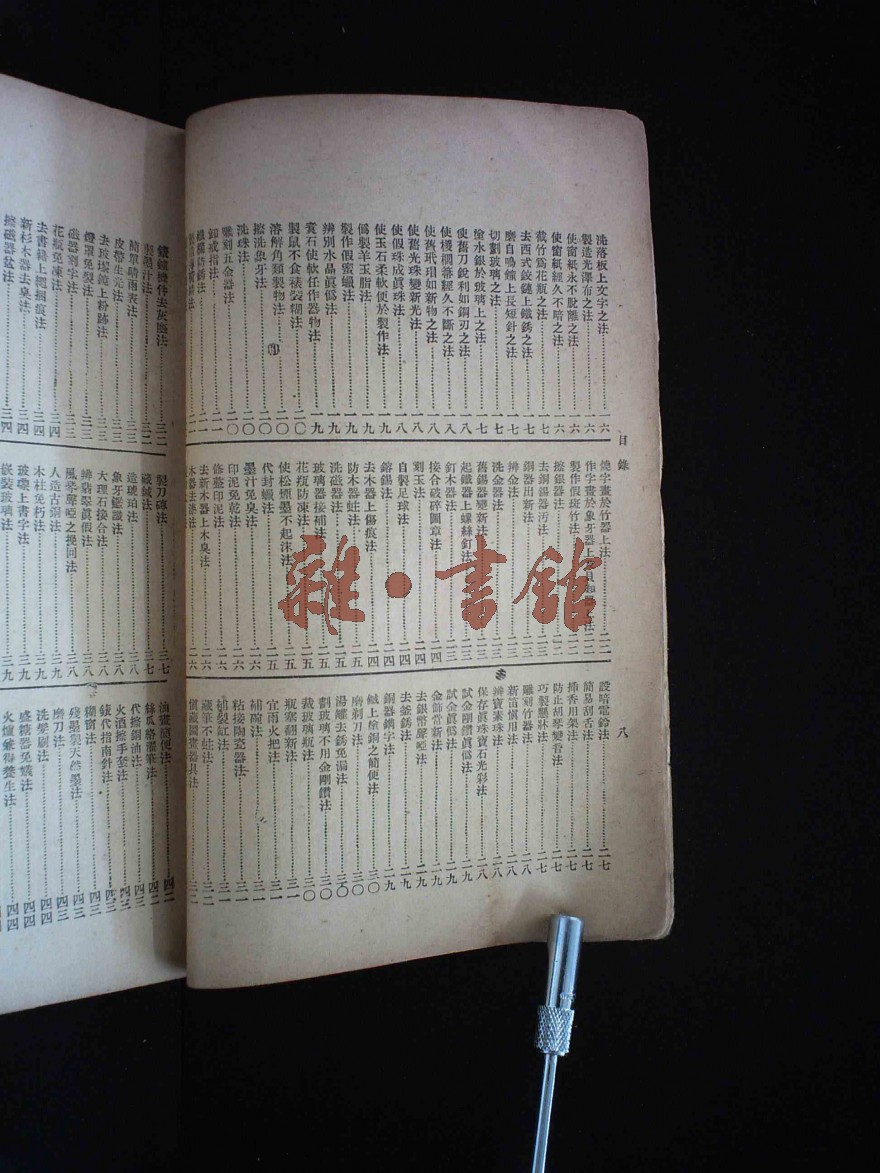 目錄
八
洗落板上文字之法……一六
製造光澤布之法……一六
使窗紙永不脫離之法……一六
使窗紙經久不暗之法……一六
截竹筒花瓶之法……一七
去西式鉸鏈上鐵銹之法……一七
磨自鳴鐘上長短針之法……一七
切劃玻璃之法……一七
使舊刀銳利如鋼刃之法……一八
使舊玳瑁如新物之法……一八
使舊光珠變新光法……一八
使假珠成眞珠法……一八
使玉石柔軟便於製作法……一九
僞製羊玉脂法……一九
製作假蜜蠟法……一九
辨別水晶眞僞法……一九
製鼠不食裱裝糊法……二〇
溶解角類製物法……二〇
擦洗象牙法……二〇
洗珠法……二〇
雕刻五金器法……二〇
卸戒指法……二一
燒字畫於竹器上法……二二
製作假斑竹法……二二
擦銀器法……二二
去銅錫器汚法……二三
銅器出新法……二三
辨金法……二三
洗金器法……二三
舊錫器變新法……二三
起鐵器上螺絲釘法……二三
釘木器法……二三
接合破碎圖章法……二四
刻玉法……二四
自製足球法……二四
鎔錫法……二四
去木器上傷痕法……二四
防木器蛀法……二五
洗磁器法……二五
玻璃器接補法……二五
花瓶防凍法……二五
使松煙墨不起沫法……二五
代封蠟法……二五
墨汁免臭法……二六
印泥免乾法……二六
修整印泥法……二六
去新木器上木臭法……二六
設暗電鈴法……二七
簡易刮舌法……二七
揷香用架法……二七
防止胡琴變音法……二七
巧製懸牀法……二七
雕刻竹器法……二八
新笛愼用法……二八
辨寶素珠法……二八
保存眞珠寶石光彩法……二八
試金剛鑽眞僞法……二九
試金眞僞法……二九
金飾常新法……二九
去銀幣聲啞法……二九
去釜銹法……二九
銅器鐫字法……二九
鍼上塗銅之簡便法……三〇
磨剃刀法……三〇
湯罐去銹免漏法……三〇
劃玻璃不用金剛鑽法……三〇
裁玻璃瓶法……三〇
瓶塞翻新法……三一
宜雨火把法……三一
補碗法……三一
粘接陶瓷器法……三一
補裂缸法……三一
藏筆不蛀法……三二
簡單晴雨表法……三三
皮帶生亮法……三三
去玻璃鏡上粉跡法……三三
燈罩免裂法……三三
磁器刻字法……三三
花瓶免凍法……三四
去書籍上繩捆痕法……三四
新杉木器去臭法……三四
擦磁器盆法……三四
製刀磚法……三七
藏鍼法……三七
造琥珀法……三八
象牙鑑識法……三八
大理石接合法……三八
辨翡翠眞假法……三八
風琴聲啞之挽回法……三八
人造古銅法……三九
木柱免朽法……三九
玻璃上書字法……三九
嵌裝玻璃法……三九
油畫簡便法……四二
絲瓜絡灑筆法……四二
代擦銅油法……四三
火酒擦手套法……四三
錶代指南針法……四三
糊窗法……四三
殘墨製天然墨法……四三
磨刀法……四三
洗髮刷法……四四
盛糖器免蟻法……四四
雜·書館